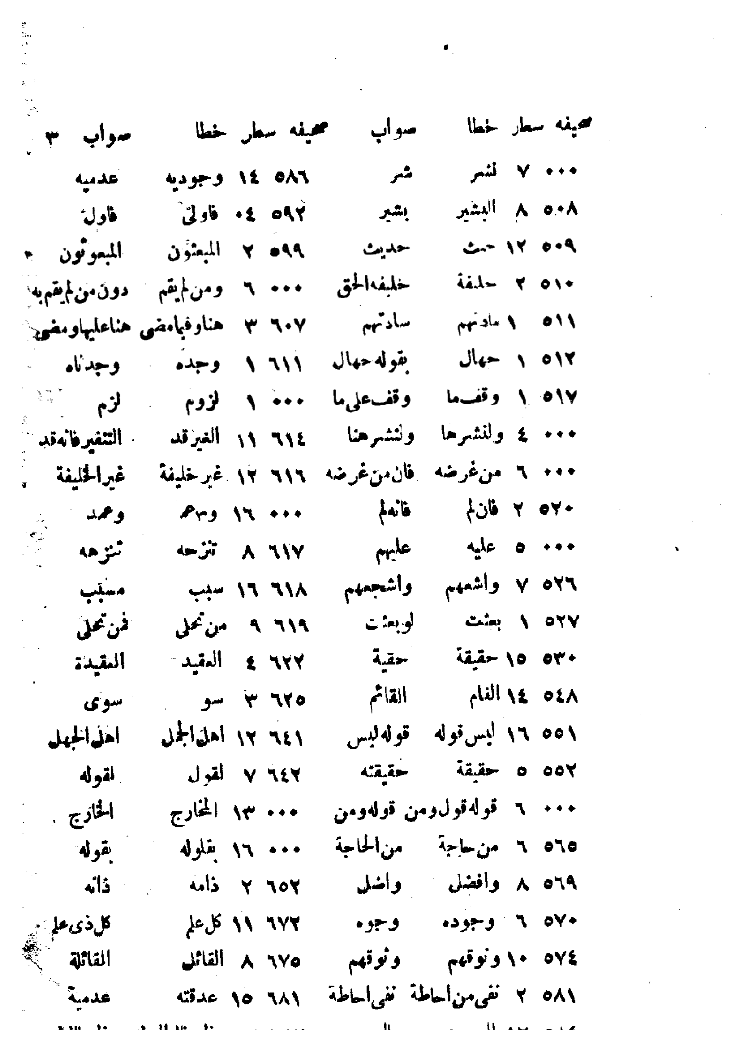 صحيفه سطار خطا صواب صحيفه سطار خطا صواب ٣
٠٠٠ ٧ لشر شر ٥٨٦ ١٤ وجوديه عدميه
٥٠٨ ٨ البشير بشير ٥٩٢ ٠٤ فاولى فاول
٥٠٩ ١٢ حديث ٥٩٩ ٢ المبعثون المبعوثون
٥١٠ ٢ خليفة خليفه الحق ٠٠٠ ٦ ومن لم يقم دون من لم يقم به
٥١١ ١ مادتهم سادتهم ٦٠٧ ٣ هنا وفيما مضى هنا عليها ومضى
٥١٢ ١ حهال بقوله حهال ٦١١ ١ وجده وجدناه
٥١٧ ١ وقف ما وقف على ما ٠٠٠ ١ لزوم لزم
٠٠٠ ٤ ولنشرها ولنشر هنا ٦١٤ ١١ الغير قد التنفير فانه قد
٠٠٠ ٦ من غرضه فان من غرضه ٦١٦ ١٢ غير خليفة غير الخليفة
٥٢٠ ٢ فان لم فانه لم ٠٠٠ ١٦ وعمد
٠٠٠ ٥ عليه عليهم ٦١٧ ٨ تنزحه تنزهه
٥٢٦ ٧ واشعهم واشجعهم ٦١٨ ١٦ سبب مسبب
٥٢٧ ١ بعثت لو بعثت ٦١٩ ٩ من تحلى فمن تحلى
٥٣٠ ١٥ حقيقة حقية ٦٢٢ ٤ العقيد العقيدة
٥٤٨ ١٤ القام القائم ٦٢٥ ٣ سو سوى
٥٥١ ١٦ ليس قوله قوله ليس ٦٤١ ١٢ اهل الجمل اهل الجهل
٥٥٢ ٥ حقيقة حقيقته ٦٤٢ ٧ لقول لقوله
٠٠٠ ٦ قوله قول ومن قوله ومن ٠٠٠ ١٣ المخارج الخارج
٥٦٥ ٦ من حاجة من الحاجة ٠٠٠ ١٦ بقلوله بقوله
٥٦٩ ٨ وافضل واضل ٦٥٢ ٢ ذامه ذاته
٥٧٠ ٦ وجوده وجوه ٦٧٢ ١١ كل علم كل ذى علم
٥٧٤ ١٠ ونوقهم وثوقهم ٦٧٥ ٨ القائل القائلة
٥٨١ ٢ نفى من احاطة نفى احاطة ٦٨١ ١٥ عدقته عدمية